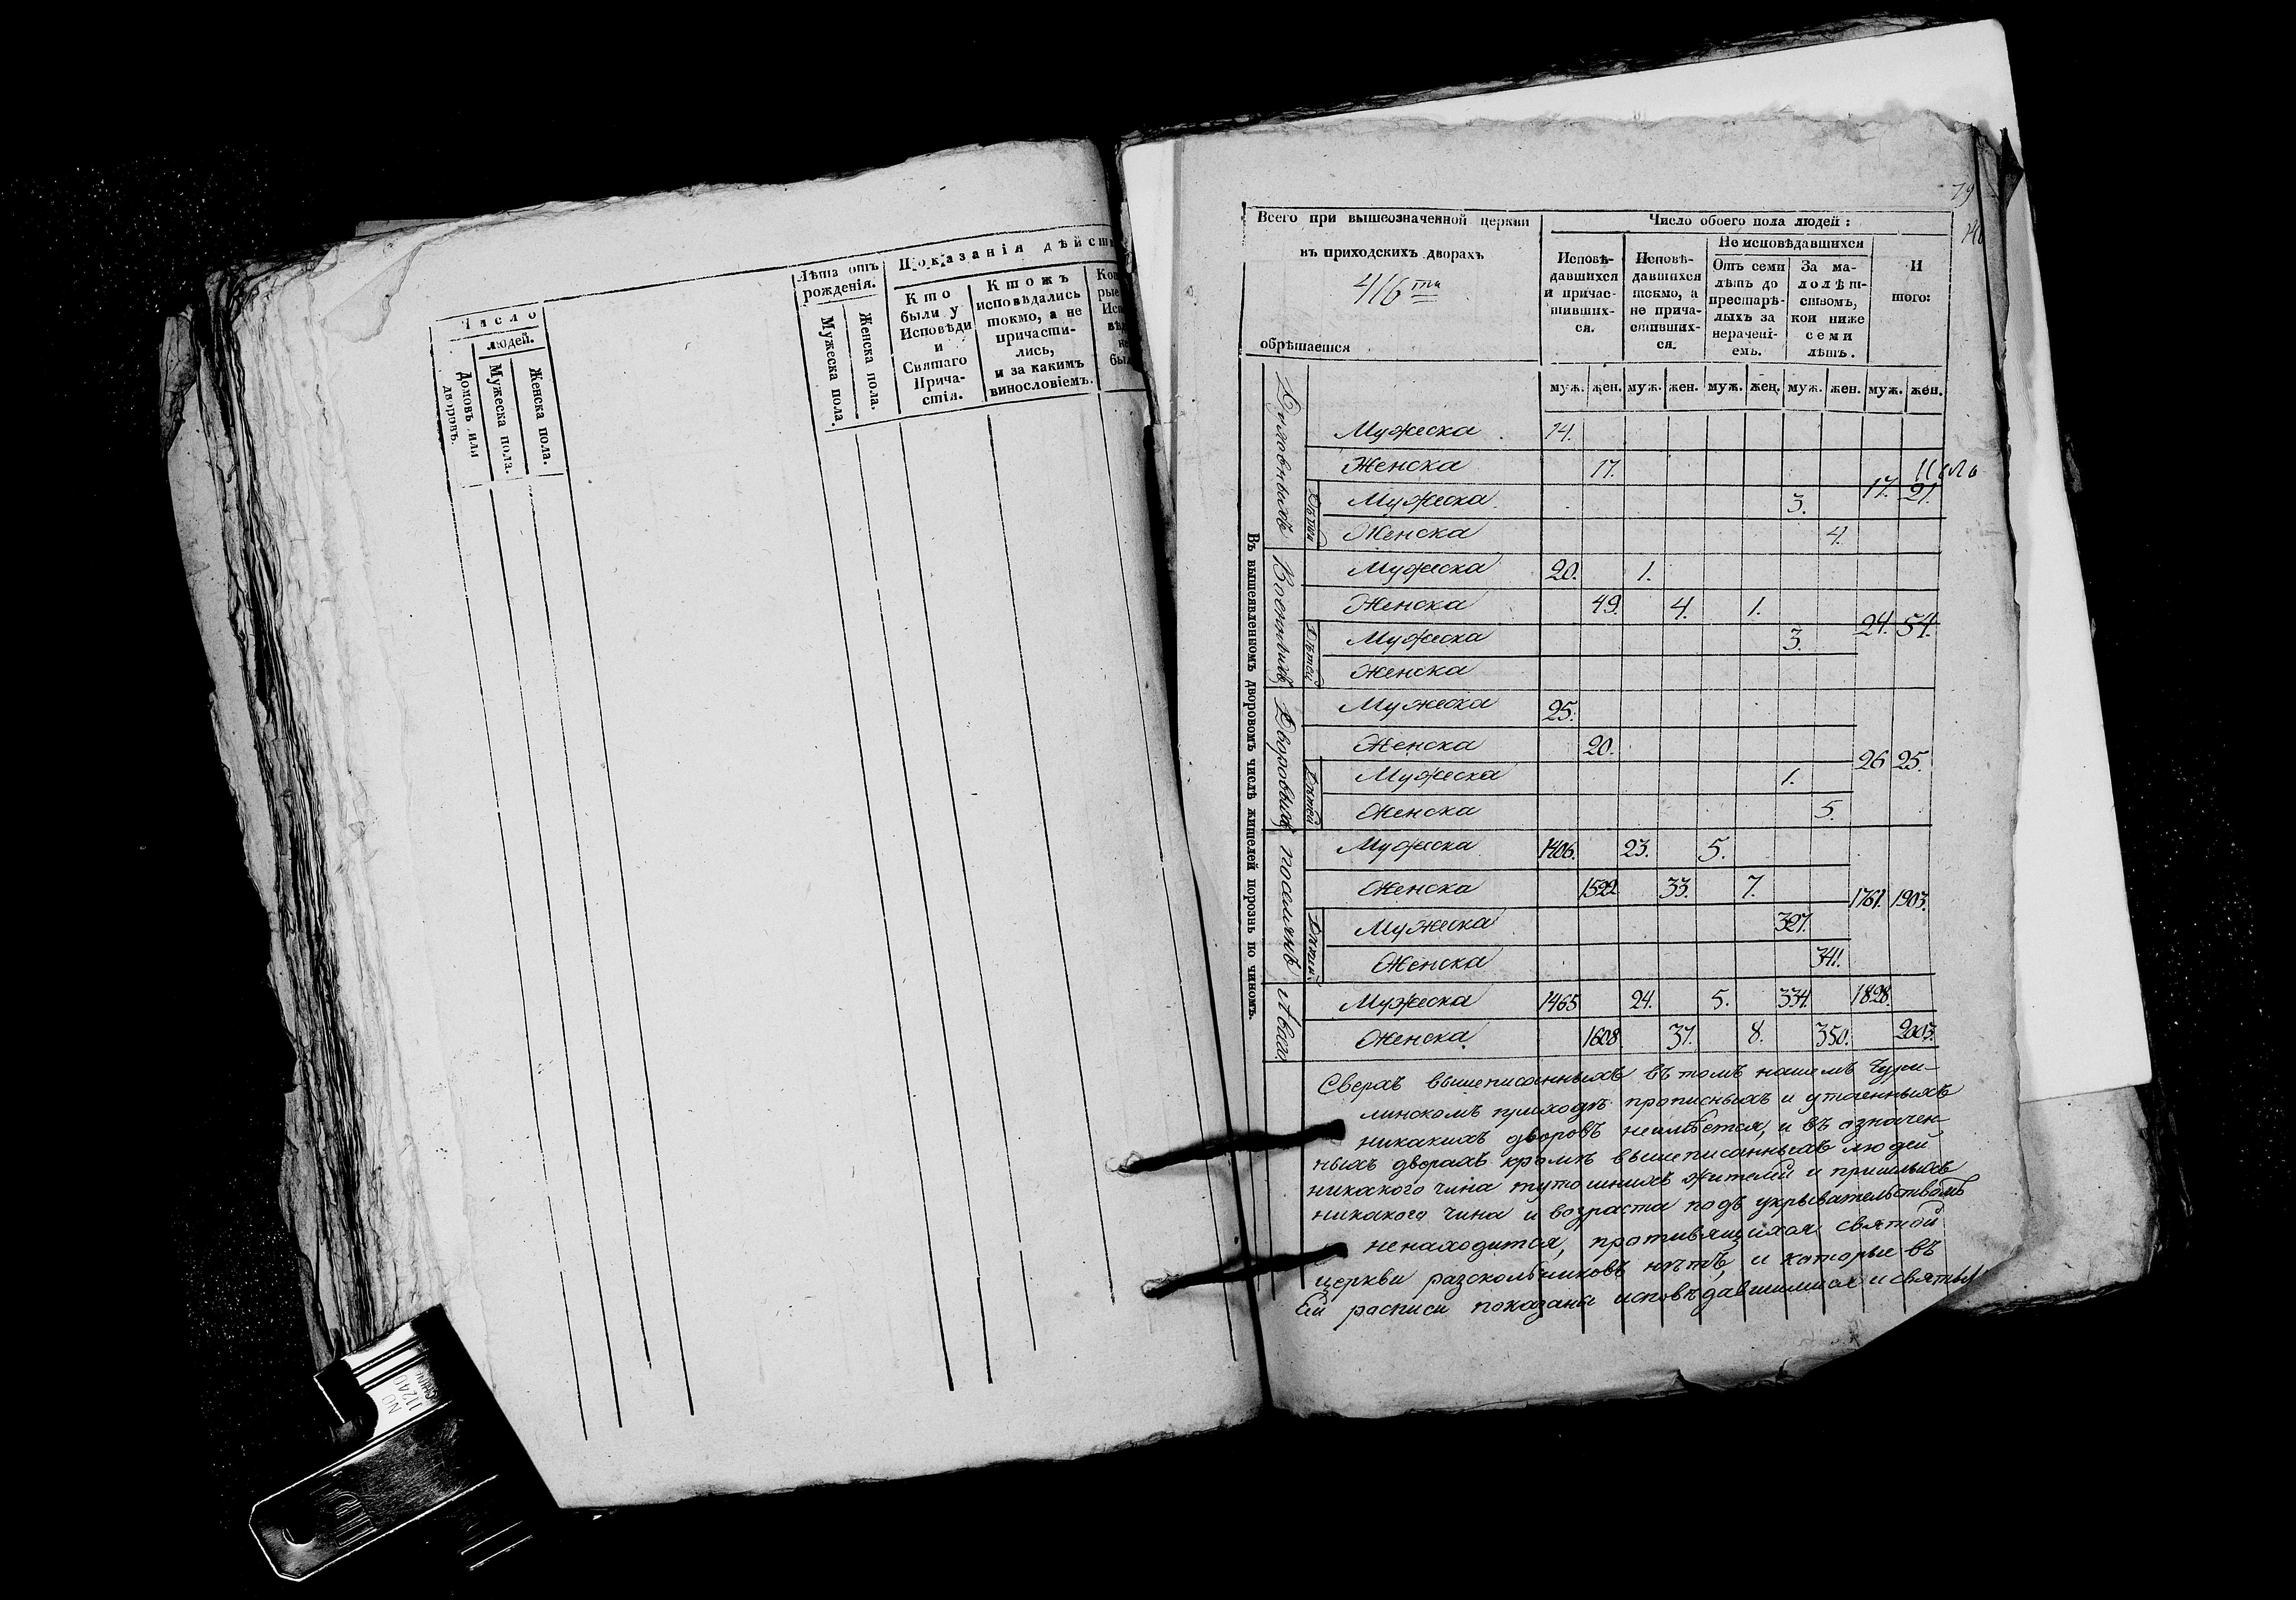 Число
людей.
Домовъ или дворовъ.
Мужеска пола.
Женска пола.
Лѣта отъ рожденія.
Мужеска пола.
Женска пола.
Показанія дѣйст
Кто
были у
Исповѣди
и
Святаго
Прича-
стія.
Ктожъ
исповѣдались
токмо, а не
причасти-
лись,
и за какимъ
винословіемъ.
NO
11240
79
Всего при вышеозначенной церкви
въ приходскихъ дворахъ
416ти
обрѣтается
Число обоего пола людей:
Исповѣ-
давшихся
и причас-
тивших-
ся.
Исповѣ-
давшихся
токмо, а
не прича-
стивших-
ся.
Не исповѣдавшихся
Отъ семи
лѣтъ до
престарѣ-
лыхъ за
нерачені-
емъ.
За ма-
лолѣт-
ствомъ,
кои ниже
семи
лѣтъ.
И
того:
муж. жен. муж. жен. муж. жен. муж. жен. муж. жен.
Въ вышеявленномъ дворовомъ числѣ жителей порознь по чиномъ.
Духовныхъ
Мужеска 14.
Женска 17.
Дѣтей
Мужеска 3. 17. 21.
Женска 4.
Военныхъ
Мужеска 20. 1.
Женска 49. 4. 1.
24. 54.
Дѣтей
Мужеска 3.
Женска
Дворовыхъ
Мужеска 25.
Женска 20.
26 25.
Дѣтей
Мужеска 1.
Женска 5.
Мужеска 1406. 23. 5.
Женска 1522 33. 7.
1761. 1903.
Дѣтей
Мужеска 327.
Женска 341.
Мужеска 1465 24. 5. 334. 1828.
Женска 1608 37. 8. 350. 2003.
Сверхъ вышеписанныхъ въ томъ нашемъ Чури-
линскомъ приходѣ прописныхъ и утаенныхъ
никакихъ дворовъ неимѣется, и въ означен-
ныхъ дворахъ кромѣ вышеписанныхъ людей
никакого чина тутошнихъ жителей и пришлыхъ
никакого чина и возраста подъ укрывательствомъ
ненаходится, противящихся святой
церкви разскольниковъ нѣтъ, и которые въ
сей росписи показаны исповѣдавшимися и святы